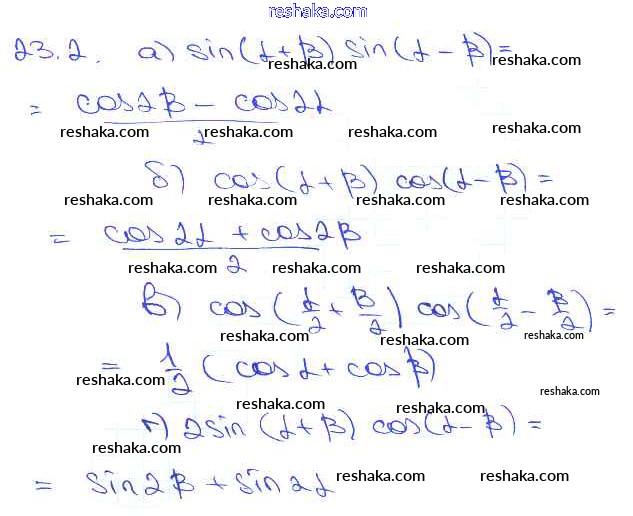 reshaka.com
23.2. а) sin(α+β) sin(α-β)=
reshaka.com reshaka.com
= cos2β - cos2α
reshaka.com 2 reshaka.com reshaka.com reshaka.com
б) cos(α+β) cos(α-β) =
reshaka.com reshaka.com reshaka.com reshaka.com
= cos2α + cos2β
reshaka.com 2 reshaka.com reshaka.com
в) cos(α/2 + β/2) cos(α/2 - β/2) =
reshaka.com reshaka.com reshaka.com
= 1/2 (cosα + cosβ)
reshaka.com reshaka.com
г) 2sin(α+β) cos(α-β) =
reshaka.com reshaka.com reshaka.com
= sin2β + sin2α
reshaka.com reshaka.com